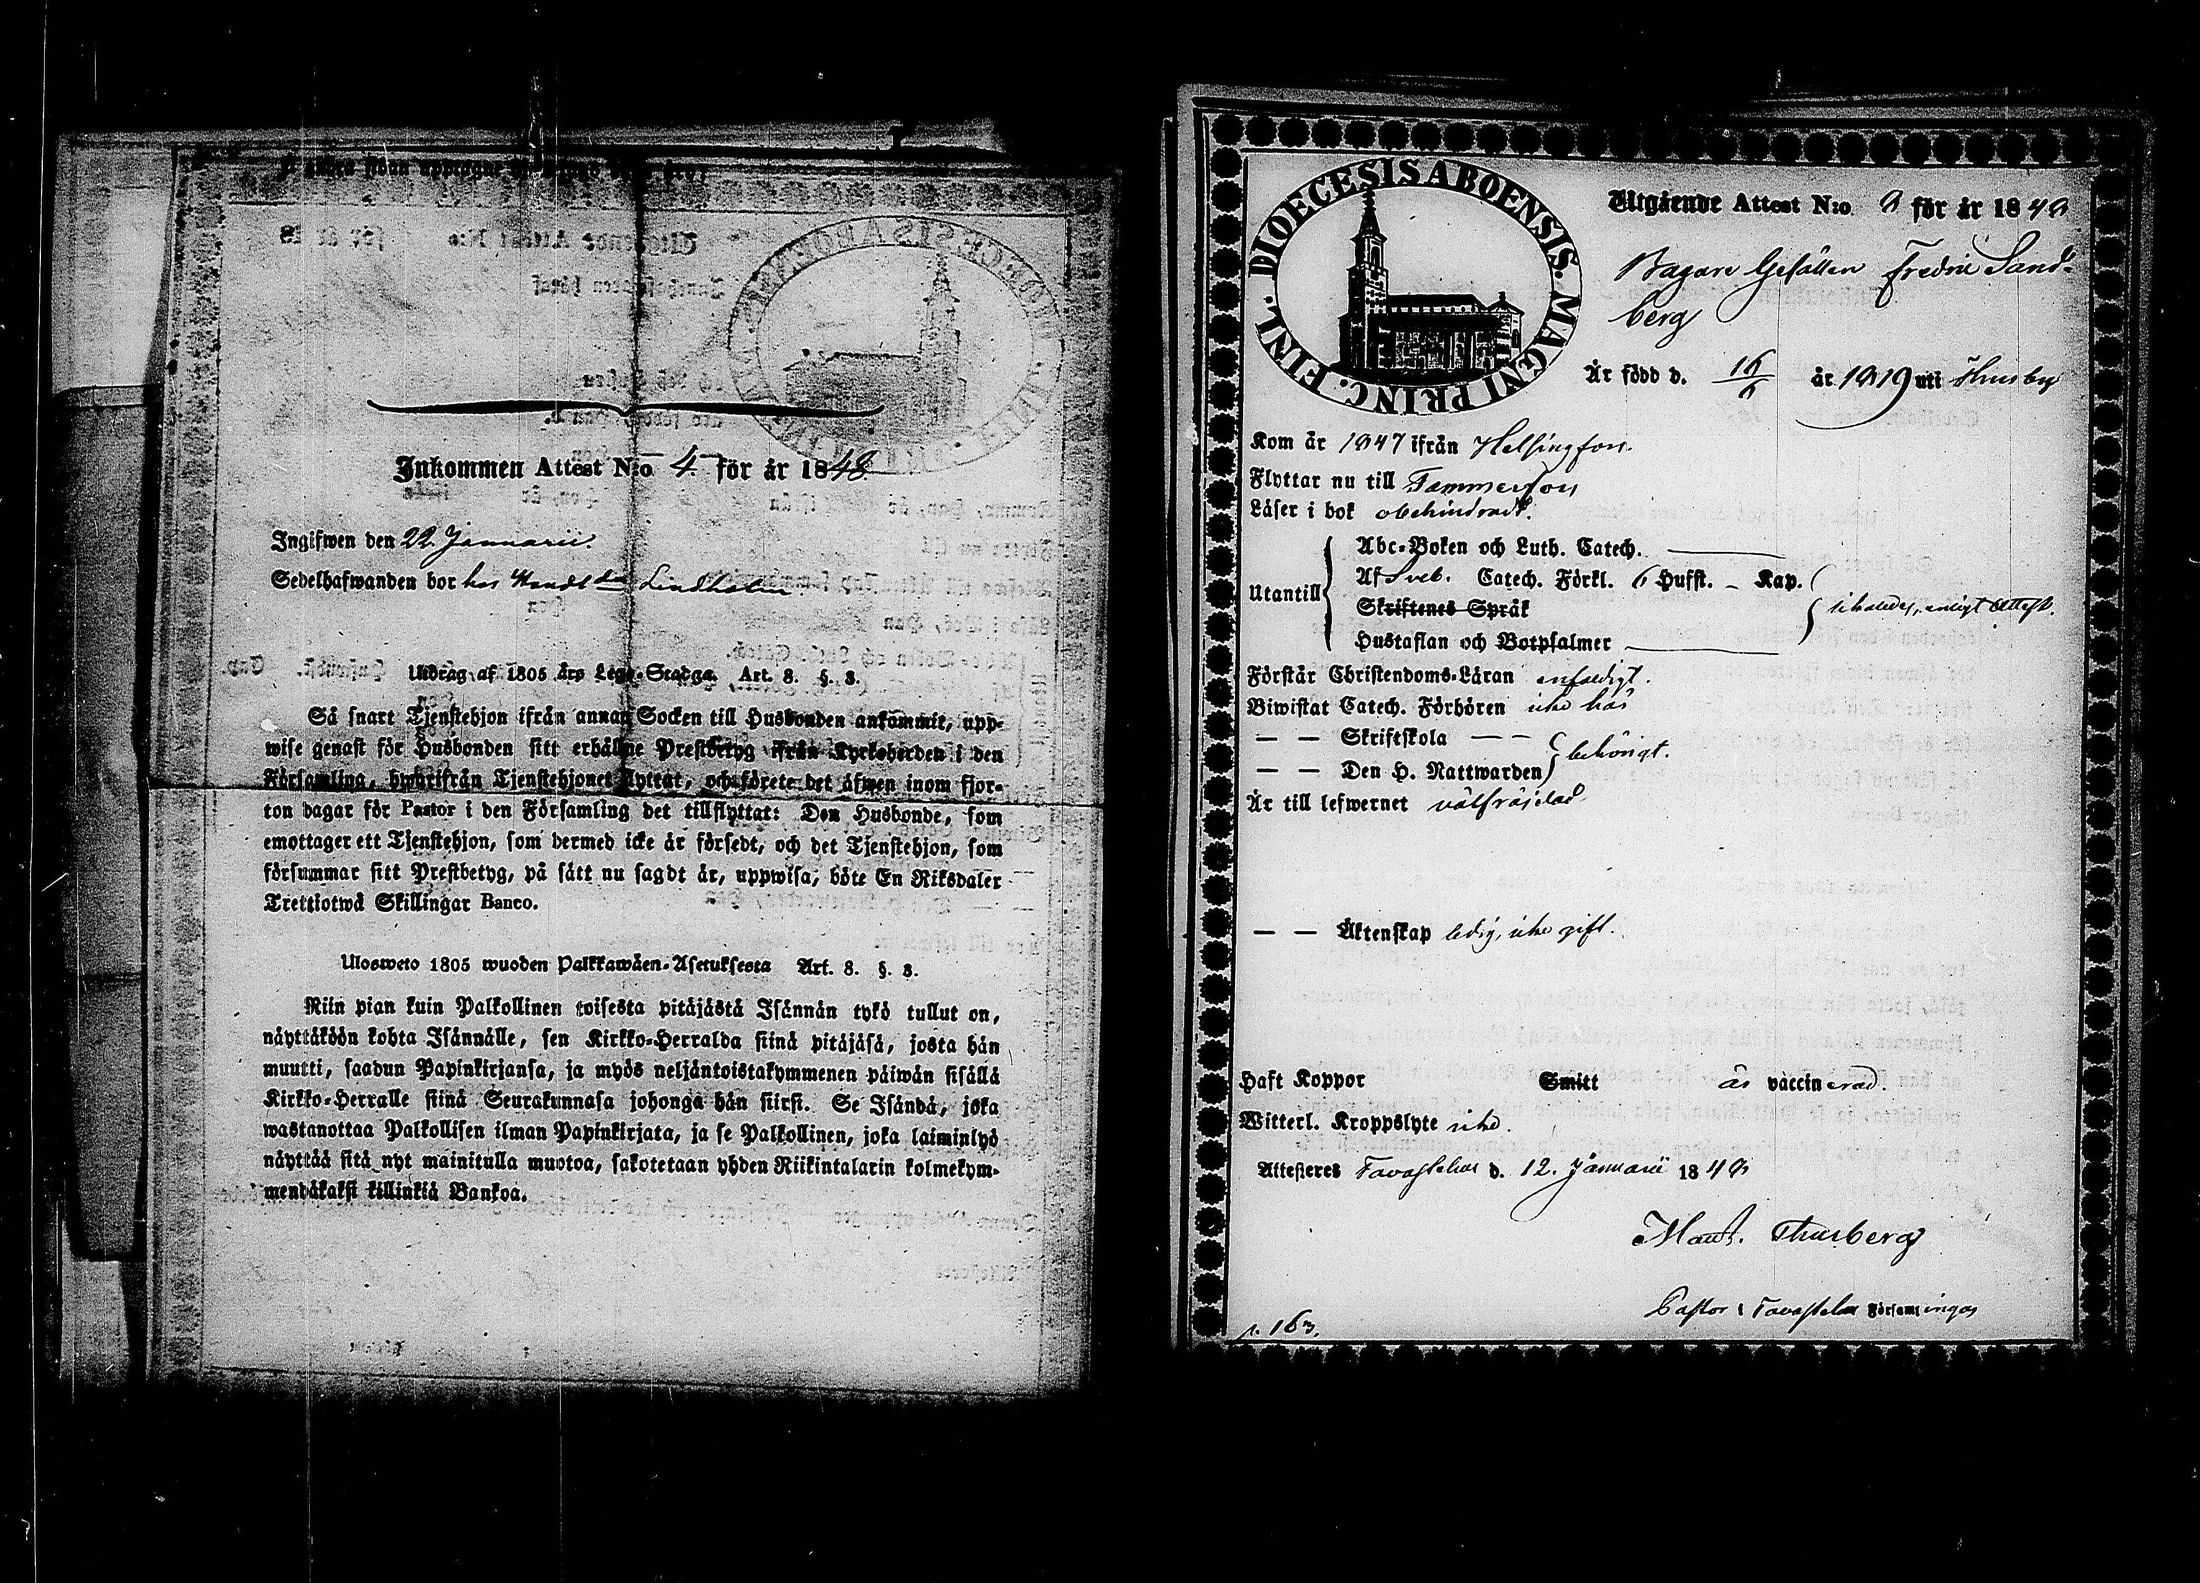 Inkommen Attest N:o 4. för år 1848.
Ingifwen den 22 Januarii.
Sedelhafwanden bor hos Handl. Lindholm
Utdrag af 1805 års Lego-Stadga. Art. 8. §. 3.
Så snart Tjenstehjon ifrån annan Socken till Husbonden ankommit, upp-
wise genast för Husbonden sitt erhållne Prestbetyg ifrån Kyrkoherden i den
Församling, hwarifrån Tjenstehjonet flyttat, och förete det äfwen inom fjor-
ton dagar för Pastor i den Församling det tillflyttat: Den Husbonde, som
emottager ett Tjenstehjon, som dermed icke är försedt, och det Tjenstehjon, som
försummar sitt Prestbetyg, på sätt nu sagdt är, uppwisa, böte En Riksdaler
Trettiotwå Skillingar Banco.
Ulosweto 1805 wuoden Palkkawäen-Asetuksesta Art. 8. §. 3.
Niin pian kuin Palkollinen toisesta pitäjästä Isännän tykö tullut on,
näyttäköön kohta Isännälle, sen Kirkko-Herralda siinä pitäjäsä, josta hän
muutti, saadun Papinkirjansa, ja myös neljäntoistakymmenen päiwän sisällä
Kirkko-Herralle siinä Seurakunnasa johonga hän siirsi. Se Isändä, joka
wastanottaa Palkollisen ilman Papinkirjata, ja se Palkollinen, joka laiminlyö
näyttää sitä nyt mainitulla muotoa, sakotetaan yhden Riikintalarin kolmekym-
mendäkaksi killinkiä Bankoa.
DIOECESIS ABOENSIS. MAGNI PRINC. FINL.
Utgående Attest N:o 8 för år 1848
Bagare Gesällen Fredric Sand-
berg
Är född d. 16/6 år 1819 uti Husby
Kom år 1847 ifrån Helsingfors.
Flyttar nu till Tammerfors
Läser i bok obehindradt.
Utantill
Abc-Boken och Luth. Catech.
Af Sveb. Catech. Förkl. 6 Hufst. – Kap.
Skriftenes Språk
likaledes, enligt Attest.
Hustaflan och Botpsalmer
Förstår Christendoms-Läran enfaldigt.
Biwistat Catech. Förhören icke här
— — Skriftskola — —
behörigt.
— — Den H. Nattwarden
Är till lefwernet välfräjdad
— — Äktenskap ledig, icke gift.
Haft Koppor Smitt är vaccinerad.
Witterl. Kroppslyte icke.
Attesteres Tavastehus d. 12. Januarii 1848
Maur. Thusberg
Pastor i Tavastehus Församlingar
p. 163.